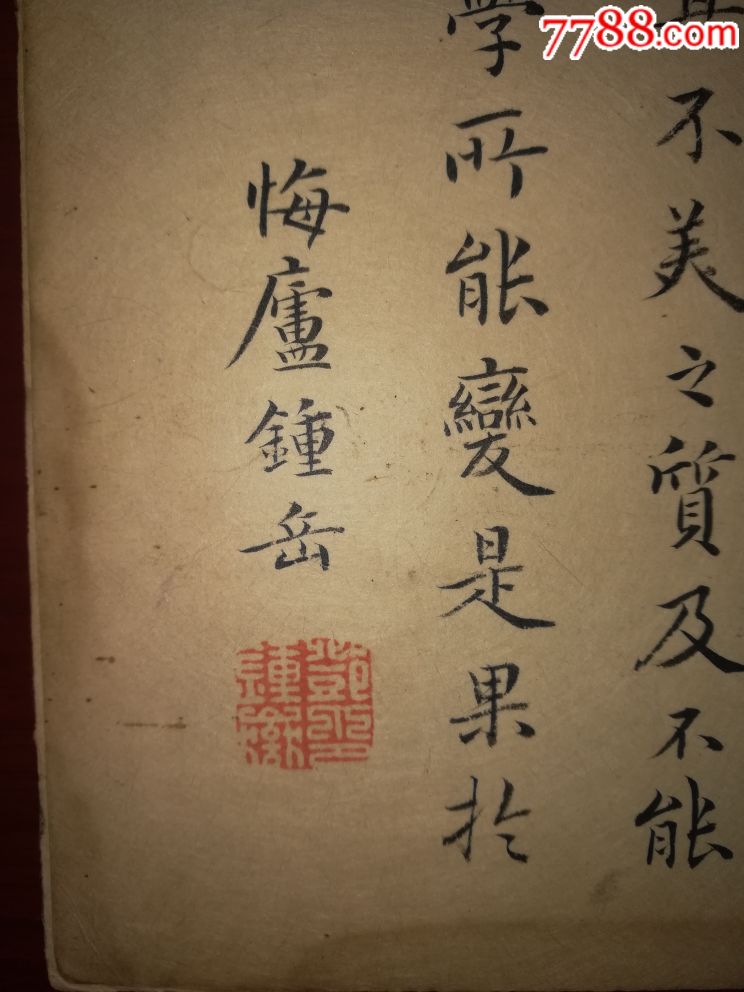 7788.com
不美之質及不能
學所能變是果於
悔廬鍾岳
鄧印鍾嶽